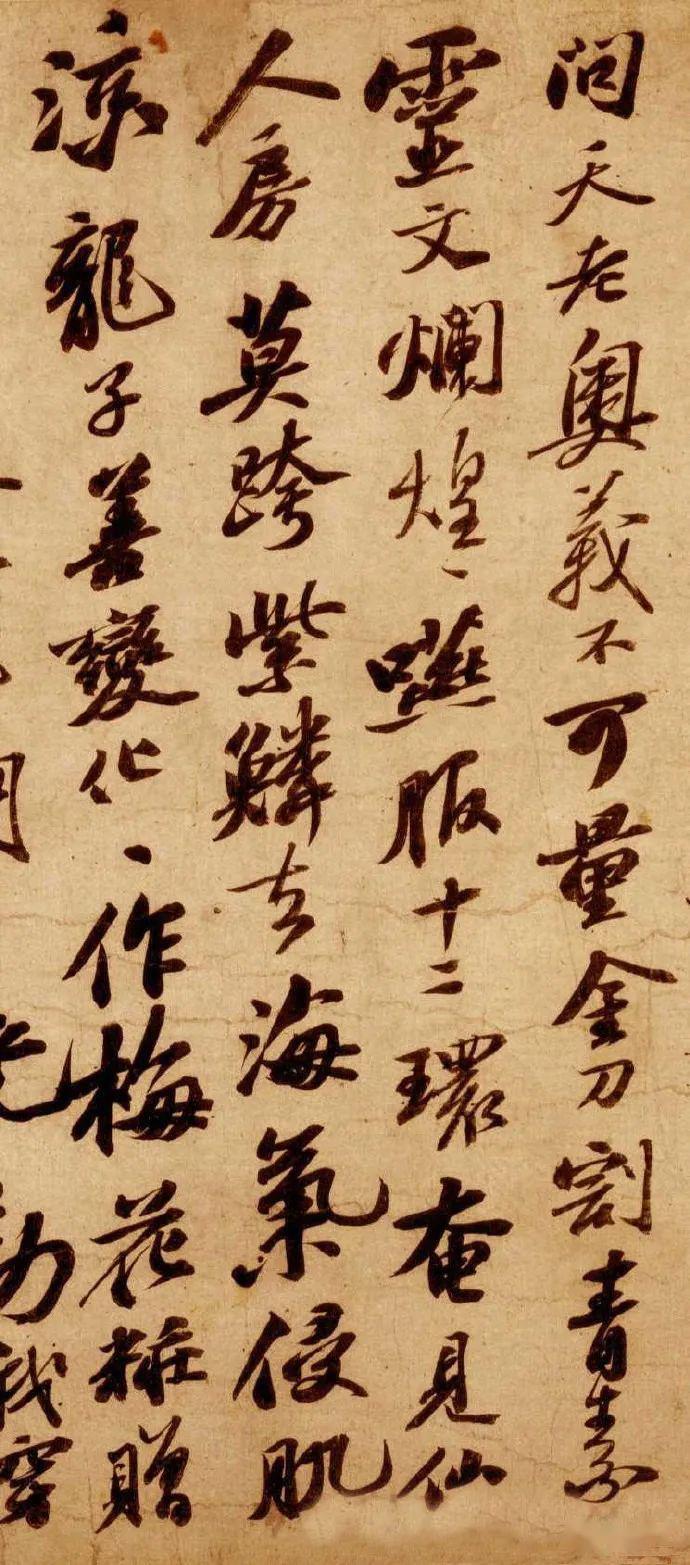 问天老奥義不可量金刀割青素
靈文爛煌〻嚥服十二環奄見仙
人房莫跨紫鱗去海氣侵肌
涼龍子善變化〻作梅花粧贈
我穿